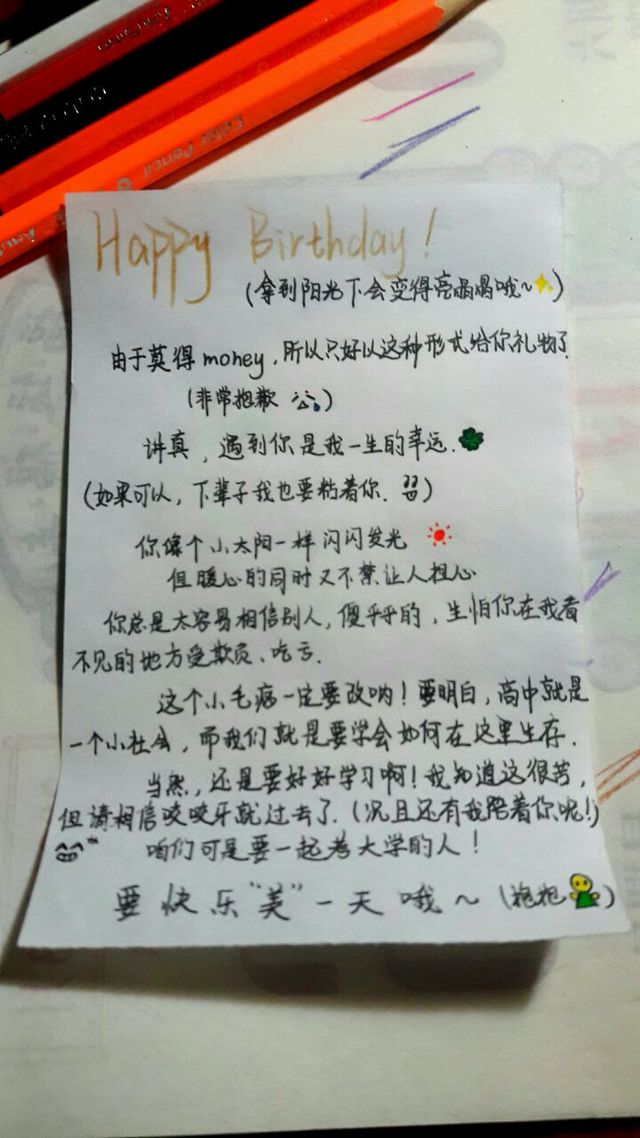 Color Pencil
Happy Birthday!
(拿到阳光下会变得亮晶晶哦~)
由于莫得money,所以只好以这种形式给你礼物了.
(非常抱歉)
讲真,遇到你是我一生的幸运.
(如果可以,下辈子我也要粘着你.)
你像个小太阳一样闪闪发光
但暖心的同时又不禁让人担心
你总是太容易相信别人,傻乎乎的,生怕你在我看
不见的地方受欺负、吃亏.
这个小毛病一定要改哟!要明白,高中就是
一个小社会,而我们就是要学会如何在这里生存.
当然,还是要好好学习啊!我知道这很苦,
但请相信咬咬牙就过去了.(况且还有我陪着你呢!)
咱们可是要一起考大学的人!
要快乐“美”一天哦~(抱抱)